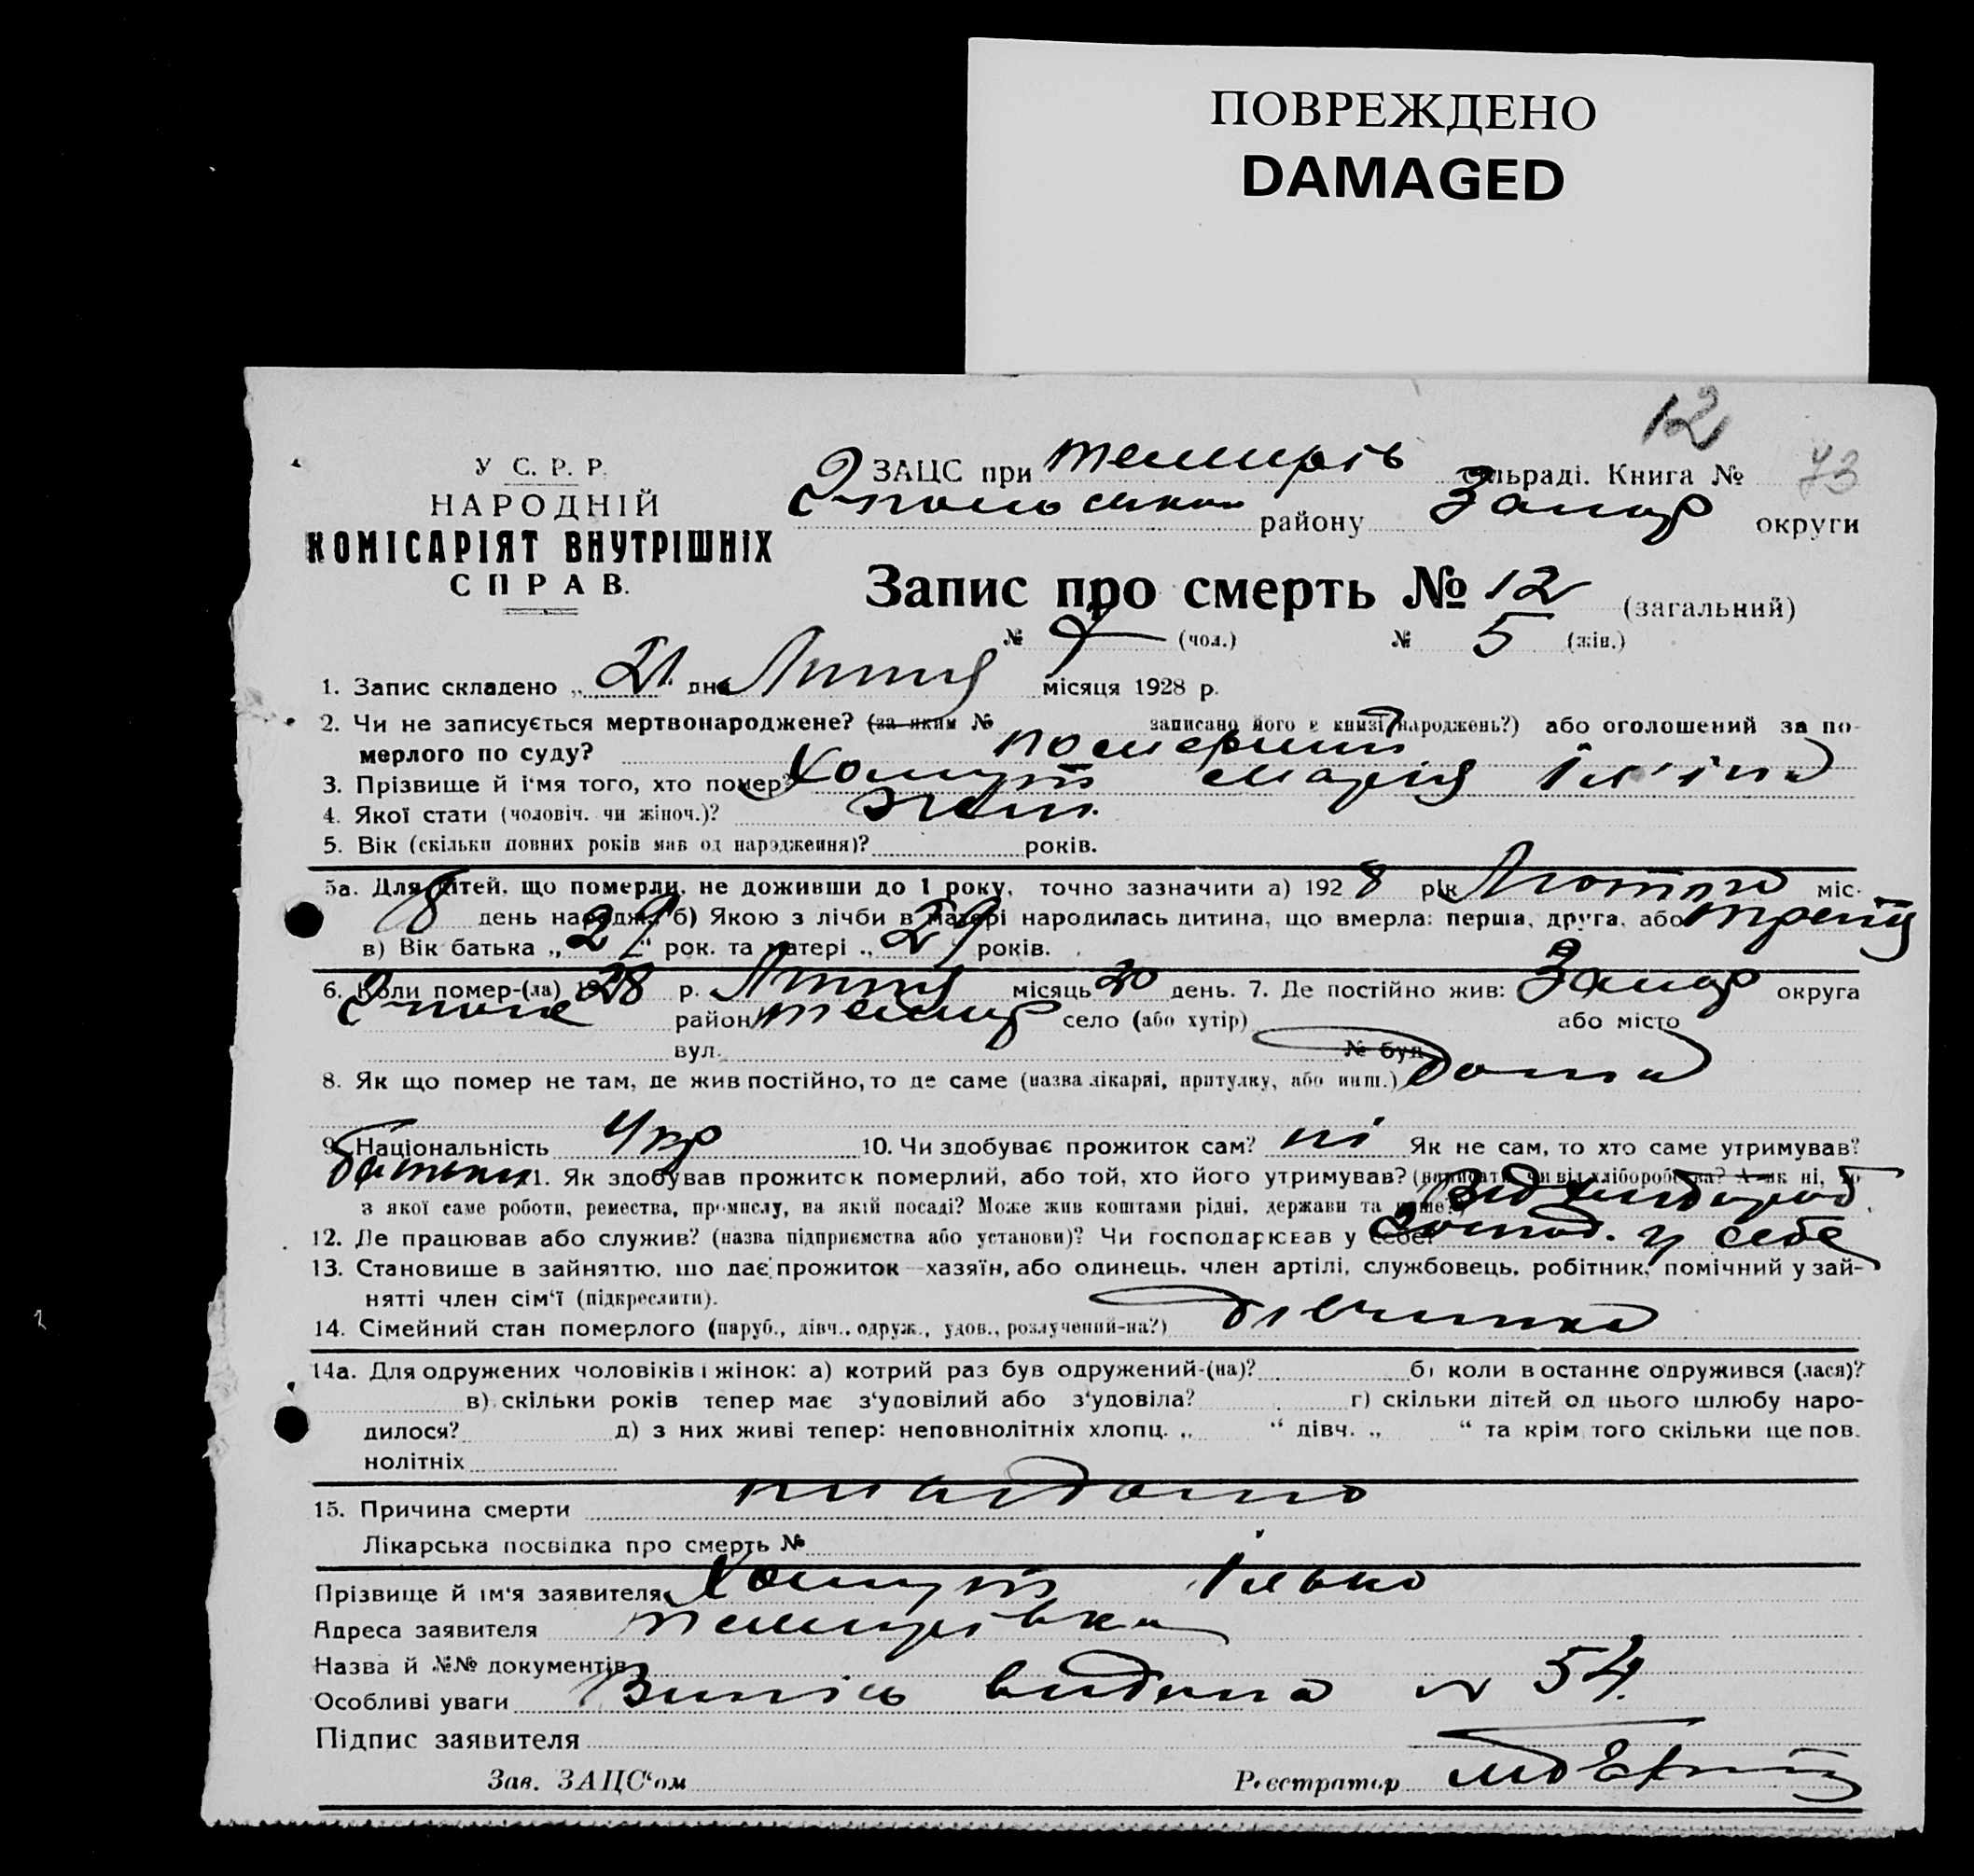 ПОВРЕЖДЕНО
DAMAGED
12
73
У С. Р. Р.
НАРОДНІЙ
КОМІСАРІЯТ ВНУТРІШНІХ
СПРАВ.
ЗАЦС при Темирів сільраді. Книга №
району Запор округи
Запис про смерть № 12 (загальний)
№ 7 (чол.) № 5 (жін.)
1. Запис складено „ 21 дня місяця 1928 р.
2. Чи не записується мертвонароджене? (за яким № записано його в книзі народжень?) або оголошений за по-
мерлого по суду? померший
3. Прізвище й і‘мя того, хто помер? Хомут Марія Іл'їна
4. Якої стати (чоловіч. чи жіноч.)? жін.
5. Вік (скільки повних років мав од народження)? років.
5а. Для дітей, що померли, не доживши до 1 року, точно зазначити а) 1928 рік Лютого міс.
8 день народж. б) Якою з лічби в матері народилась дитина, що вмерла: перша, друга, або третя
в) Вік батька „29“ рок. та матері „29 років.
6. Коли помер-(ла) 1928 р. місяць 20 день. 7. Де постійно жив: Запор округа
район Темир село (або хутір) або місто
вул. № буд.
8. Як що помер не там, де жив постійно, то де саме (назва лікарні, притулку, або инш.) Дома
9. Національність Укр 10. Чи здобуває прожиток сам? ні Як не сам, то хто саме утримував?
батьки 11. Як здобував прожиток померлий, або той, хто його утримував? (написати, чи від хліборобства? А як ні, то
з якої саме роботи, ремества, промислу, на якій посаді? Може жив коштами рідні, держави та инше?) Від хлібороб.
12. Де працював або служив? (назва підприємства або установи)? Чи господарював у себе? Господ. у себе
13. Становище в зайняттю, що дає прожиток—хазяїн, або одинець, член артілі, службовець, робітник, помічний у зай-
нятті член сім‘ї (підкреслити).
14. Сімейний стан померлого (паруб., дівч., одруж., удов., розлучений-на?) дівчинка
14а. Для одружених чоловіків і жінок: а) котрий раз був одружений-(на)? б) коли востаннє одружився (лася)?
в) скільки років тепер має з‘удовілий або з‘удовіла? г) скільки дітей од цього шлюбу наро-
дилося? д) з них живі тепер: неповнолітніх хлопц. „ “ дівч. „ “ та крім того скільки ще пов.
нолітніх
15. Причина смерти невідомо
Лікарська посвідка про смерть №
Прізвище й ім‘я заявителя Хомут Ілько
Адреса заявителя Темирівка
Назва й №№ документів
Особливі уваги Випись видана № 54.
Підпис заявителя
Зав. ЗАЦС‘ом Реєстратор